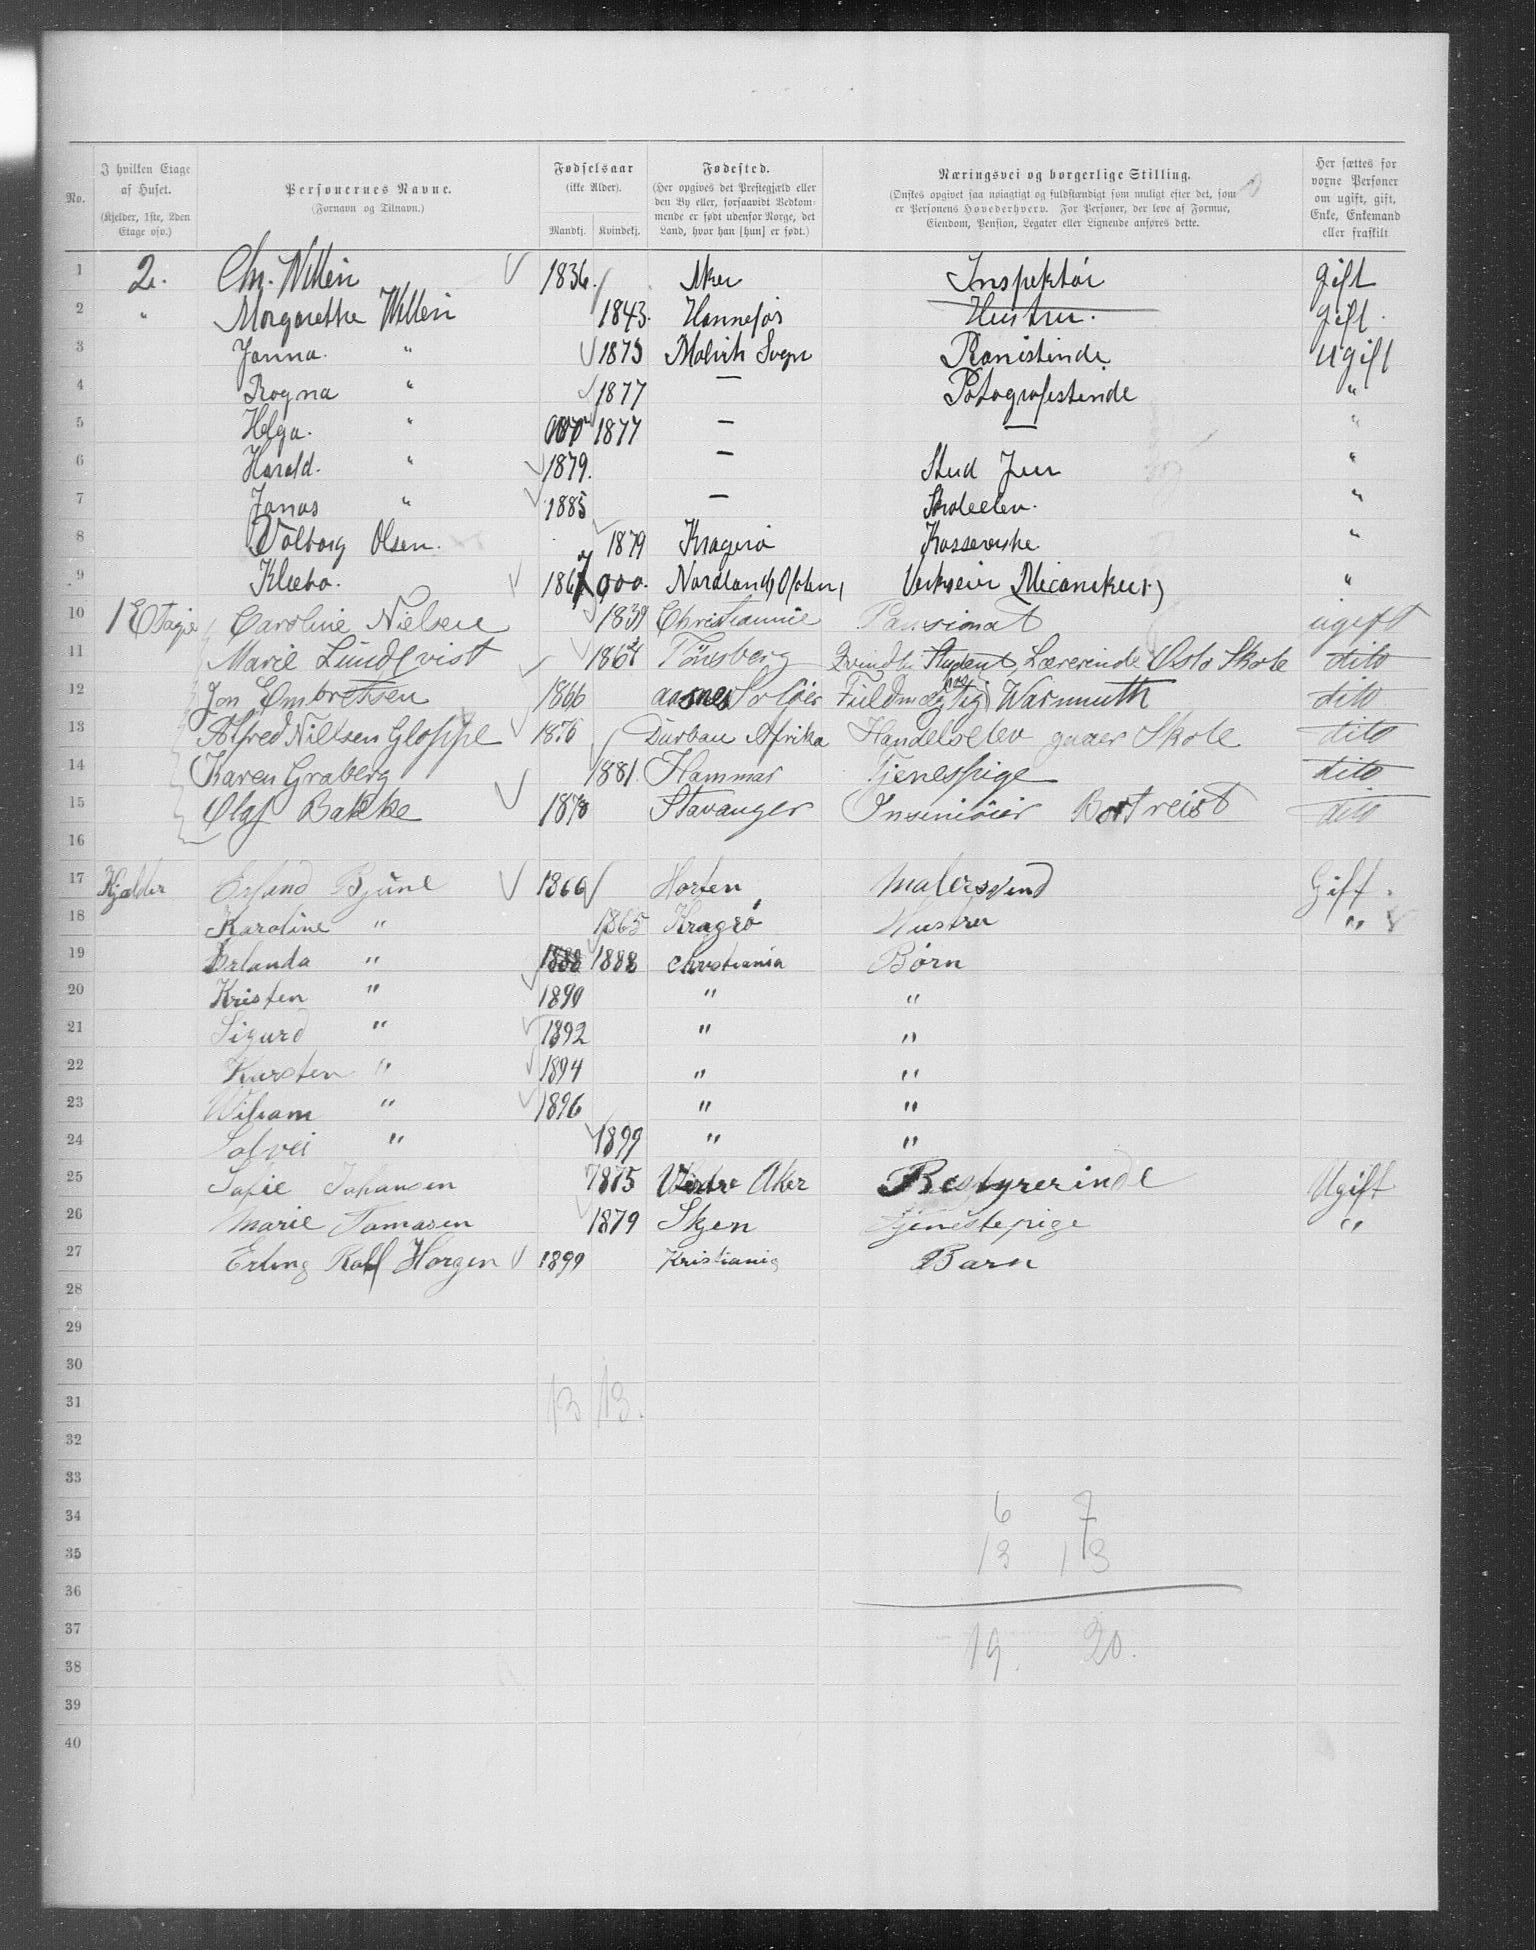 No. | I hvilken Etage af Huset. (Kjelder, 1ste, 2den Etage osv.) | Personernes Navne. (Fornavn og Tilnavn.) | Fødselsaar (ikke Alder). Mandkj. Kvindekj. | Fødested. (Her opgives det Prestegjæld eller den By eller, forsaavidt Vedkommende er født udenfor Norge, det Land, hvor han [hun] er født.) | Næringsvei og borgerlige Stilling. (Ønskes opgivet saa nøiagtigt og fuldstændigt som muligt efter det, som er Personens Hovederhverv. For Personer, der leve af Formue, Eiendom, Pension, Legater eller Lignende anføres dette. | Her sættes for voxne Personer om ugift, gift, Enke, Enkemand eller fraskilt
1 2. Chr. Willén 1836 Aker Inspektør gift
2 " Margarethe Willén 1843. Hustru. gift.
3 Janna. " 1875 Malvik Sogn Pianistinde Ugift
4 Ragna " 1877 — Fotografistinde "
5 Helga. " 1877 — — "
6 Harald. " 1879. — Stud Jur "
7 Jonas " 1885 — Skoleelev. "
8 Valborg Olsen. 1879 Kragerø Kasserske "
9 Klæbo. 1867 Nordland, "
10 1 Etagie Caroline Nielsen 1839 Christiania Pansionat ugift
11 Marie Lündqvist Tönsberg Student, Lærerinde Oslo Skole dito
12 Jon Embretsen 1866 Warmuth dito
13 Alfred Nilsen Gloppe 1876 Durban Afrika Handelselev gaaer Skole dito
14 Karen Graberg 1881. Hammar Tjenespige dito
15 Olaf Bakke 1878 Stavanger Inseniöier Bortreist dito
16
17 Kjælder Erland Bjüne 1866 Horten malersvend Gift.
18 Karoline " 1865 Kragrø Hustru "
19 Erlanda " 1888 1888 Christiania Børn
20 Kristen " 1890 " "
21 Sigurd " 1892 " "
22 Karsten " 1894 " "
23 Wiliam " 1896 " "
24 Solvei " 1899 " "
25 Sofie Johansen 1875 Vestre Aker Bestyrerinde Ugift
26 Marie Tomasen 1879 Skjen Tjenestepige "
27 Erling Rolf Horgen 1899 Kristiania Barn
28
29
30
31 13 13.
32
33
34 6 7
35 13 13
36
37 19. 20.
38
39
40